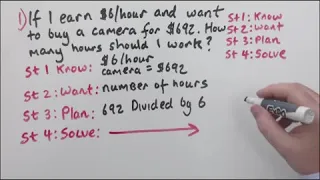 1) If I earn $6/hour and want
to buy a camera for $692. How
many hours should I work?
St 1: Know
St 2: Want
St 3: Plan
St 4: Solve
St 1 Know: $6/hour
camera = $692
St 2: Want: number of hours
St 3: Plan: 692 Divided by 6
St 4: Solve: